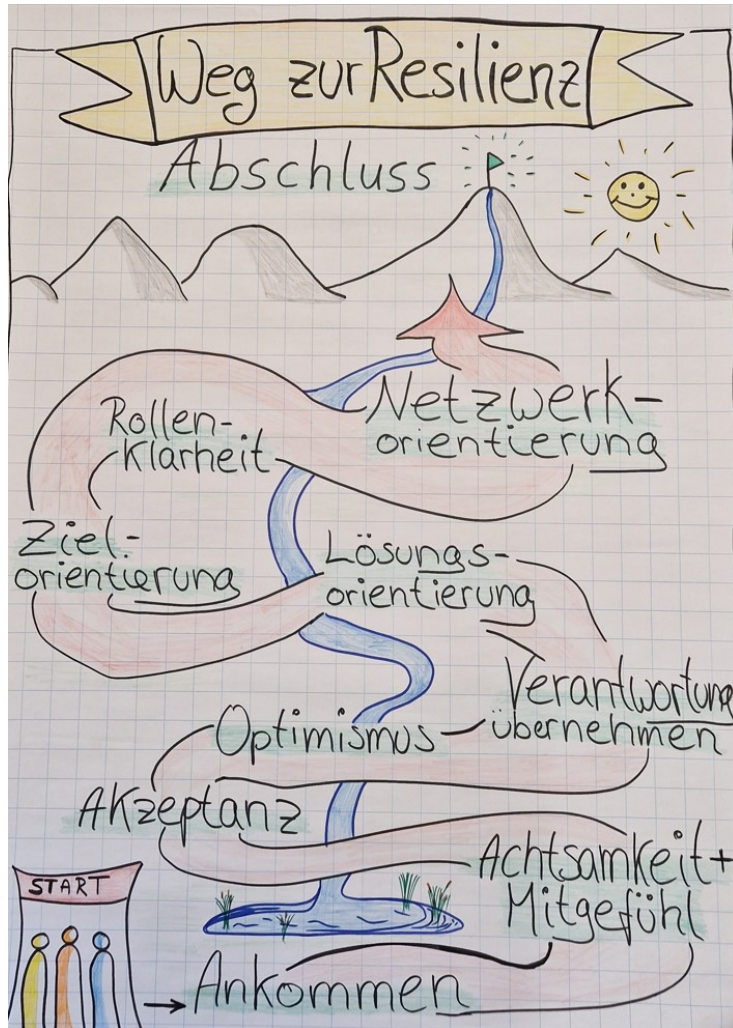 Weg zur Resilienz
Abschluss
Netzwerk-
orientierung
Rollen-
Klarheit
Ziel-
orientierung
Lösungs-
orientierung
Verantwortung
übernehmen
Optimismus
Akzeptanz
Achtsamkeit+
Mitgefühl
START
Ankommen